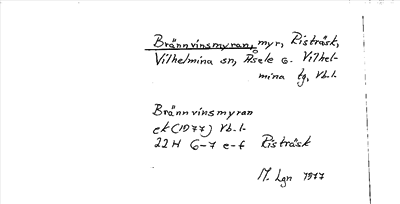 Brännvinsmyran, myr, Risträsk,
Vilhelmina sn, Åsele o. Vilhel-
mina tg, Vb.l.
Brännvinsmyran
ek (1977) Vb.l.
22H 6-7 e-f Risträsk
M. Lgn 1977